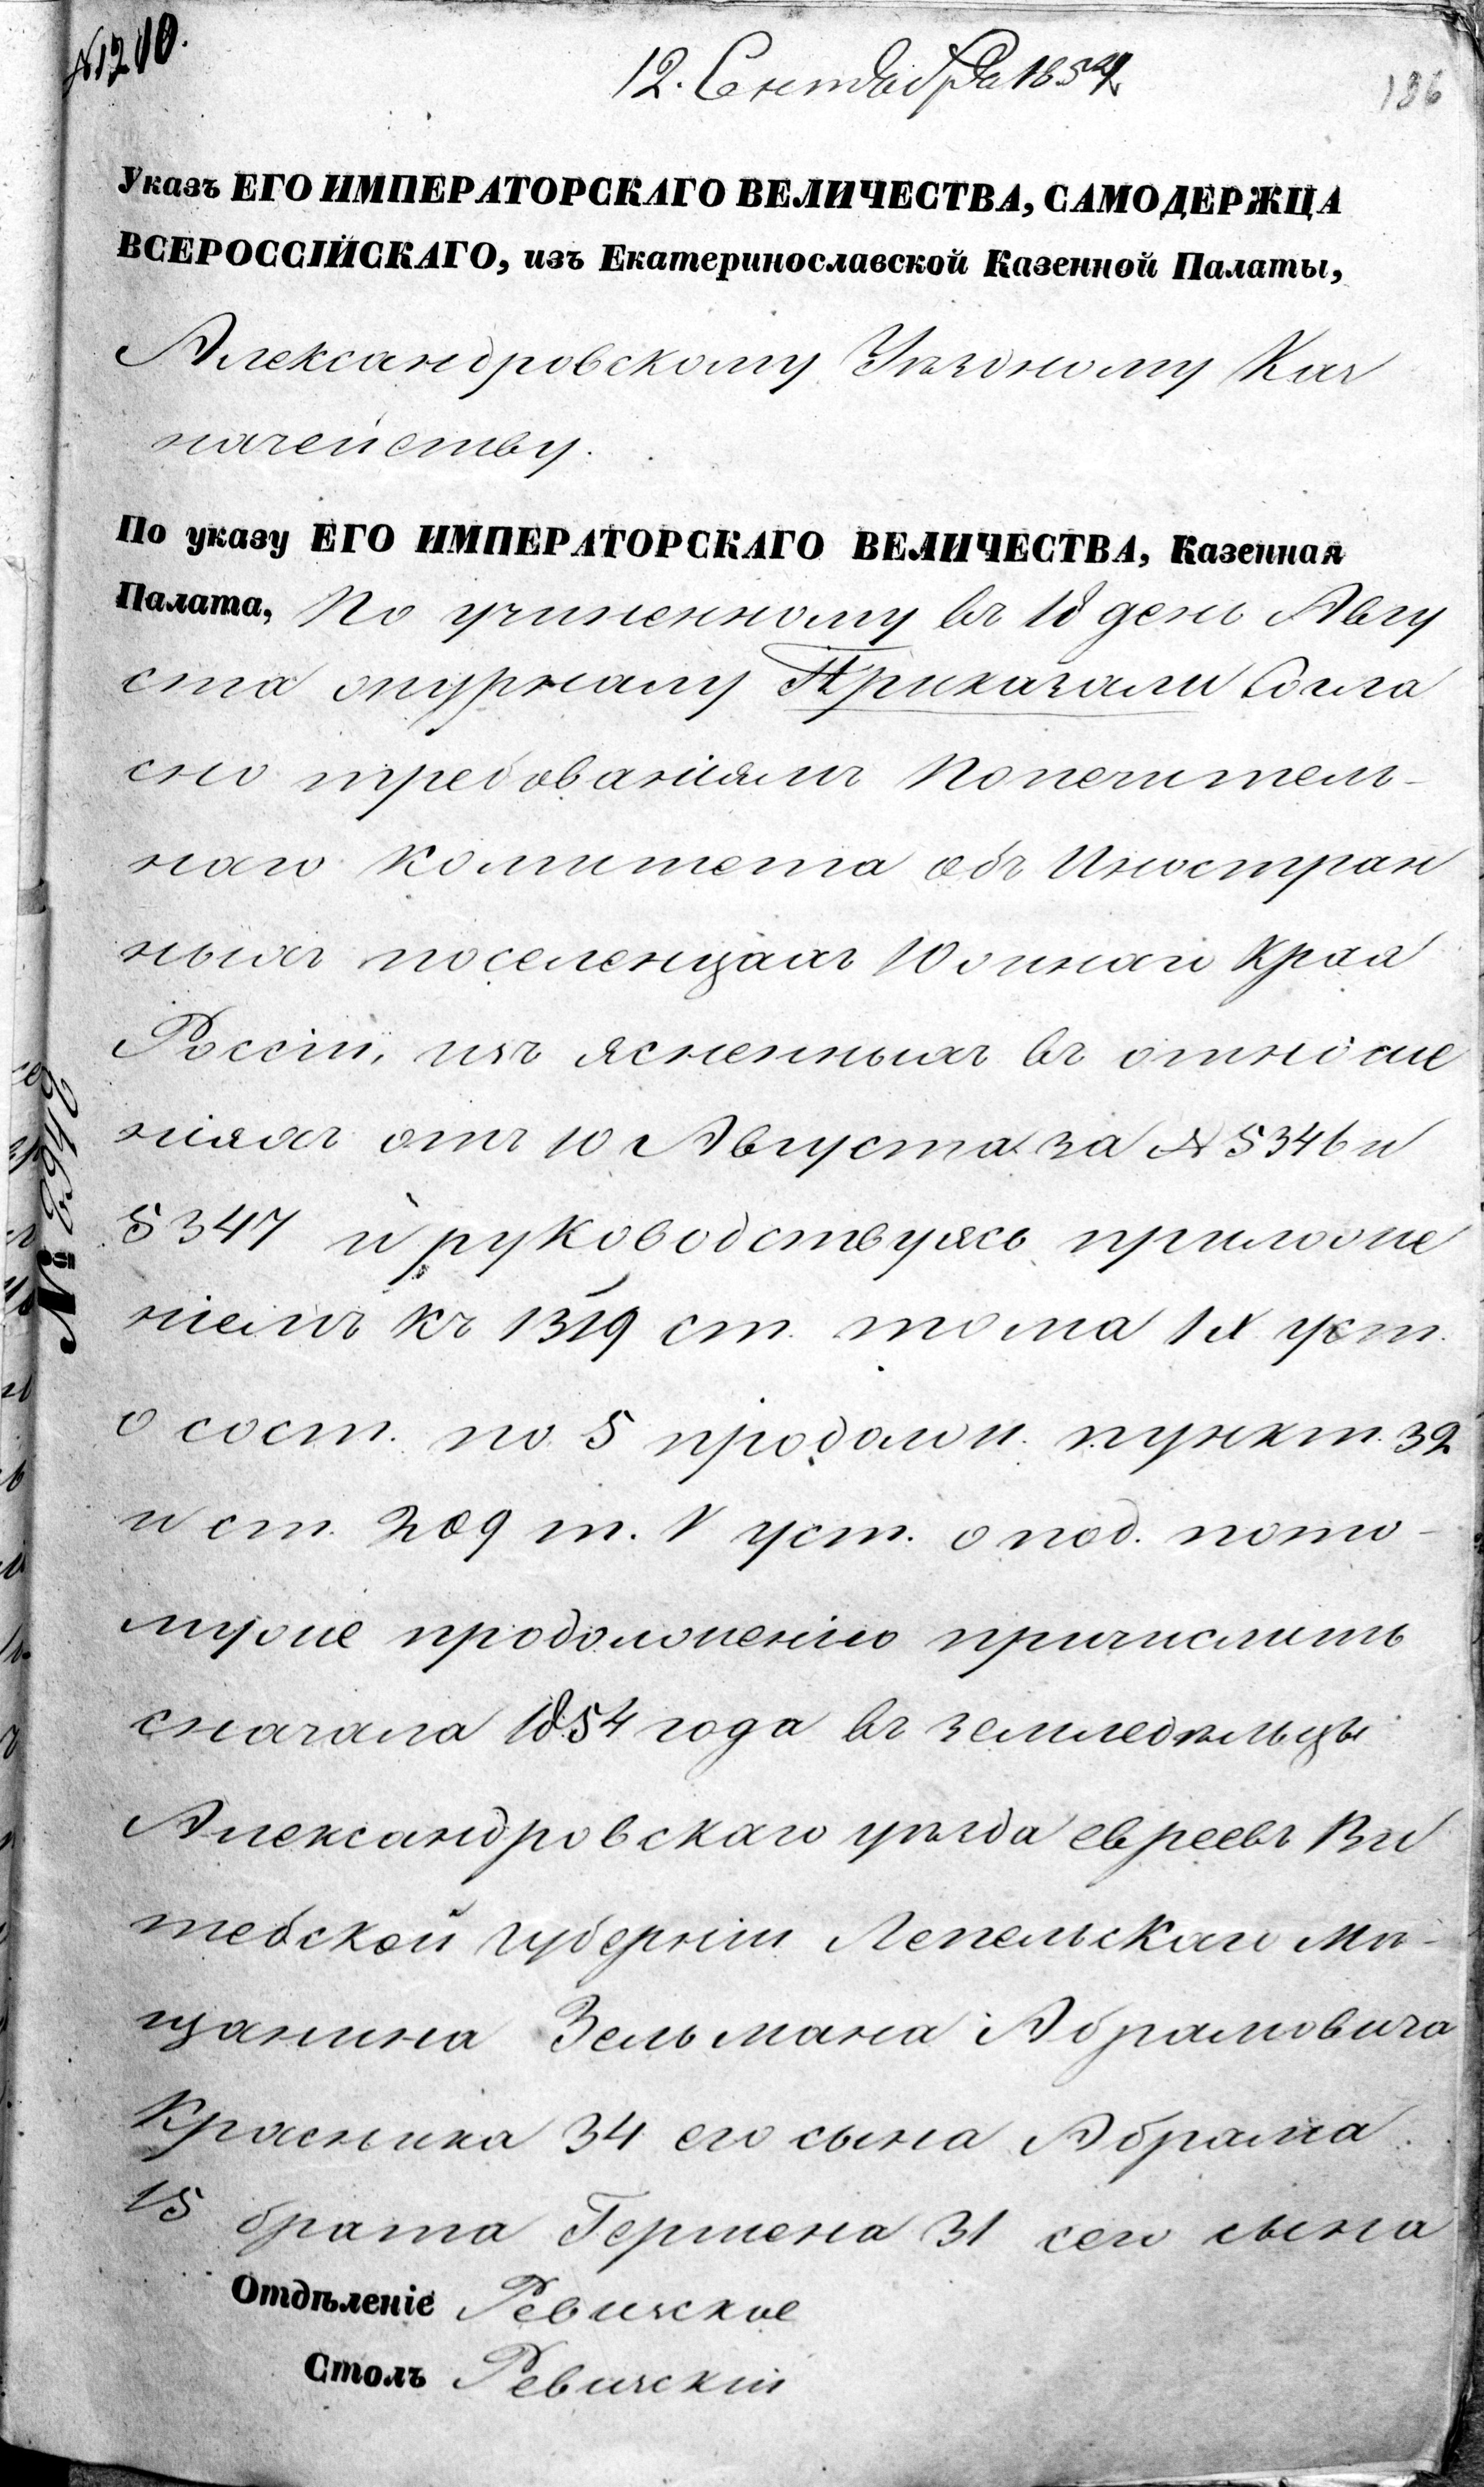 №1200.
12. Сентября 1854.
186
Указъ ЕГО ИМПЕРАТОРСКАГО ВЕЛИЧЕСТВА, САМОДЕРЖЦА
ВСЕРОССІЙСКАГО, изъ Екатеринославской Казенной Палаты,
Александровскому Уѣздному Каз
начейству.
По указу ЕГО ИМПЕРАТОРСКАГО ВЕЛИЧЕСТВА, Казенная
Палата, По учиненному въ 18 день Авгу
ста журналу Приказали Согла
сно требованіямъ Попечитель-
наго Комитета объ Иностран
ныхъ поселенцахъ Южнаго Края
Россіи, изъясненныхъ въ отноше
ніяхъ отъ 10 Августа за № 5346 и
5347 и руководствуясь приложе
ніемъ къ 1319 ст. тома IX уст.
о сост. по 5 продолж. пункт. 32
и ст. 209 т. V уст. о под. пото-
муже продолженію причислить
сначала 1854 года въ земледѣльцы
Александровскаго уѣзда евреевъ Ви
тебской губерніи Лепельскаго Мѣ-
щанина Зельмана Абрамовича
Красника 34 его сына Абрама
15 брата Гершена 31 сего сына
Отдѣленіе Ревизское
Столъ Ревизскій